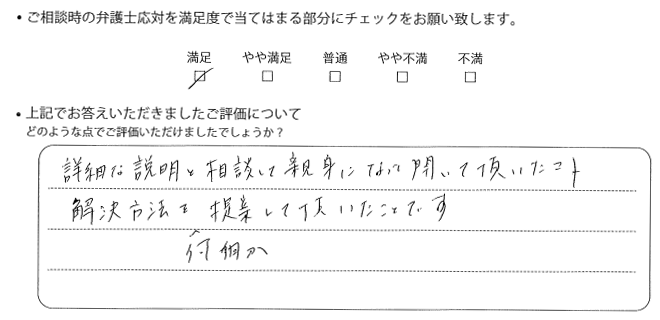 ・ご相談時の弁護士応対を満足度で当てはまる部分にチェックをお願い致します。
満足 やや満足 普通 やや不満 不満
☑ □ □ □ □
・上記でお答えいただきましたご評価について
どのような点でご評価いただけましたでしょうか？
詳細な説明と相談して親身になって聞いて頂いたこと
解決方法を提案して頂いたことです
何個か